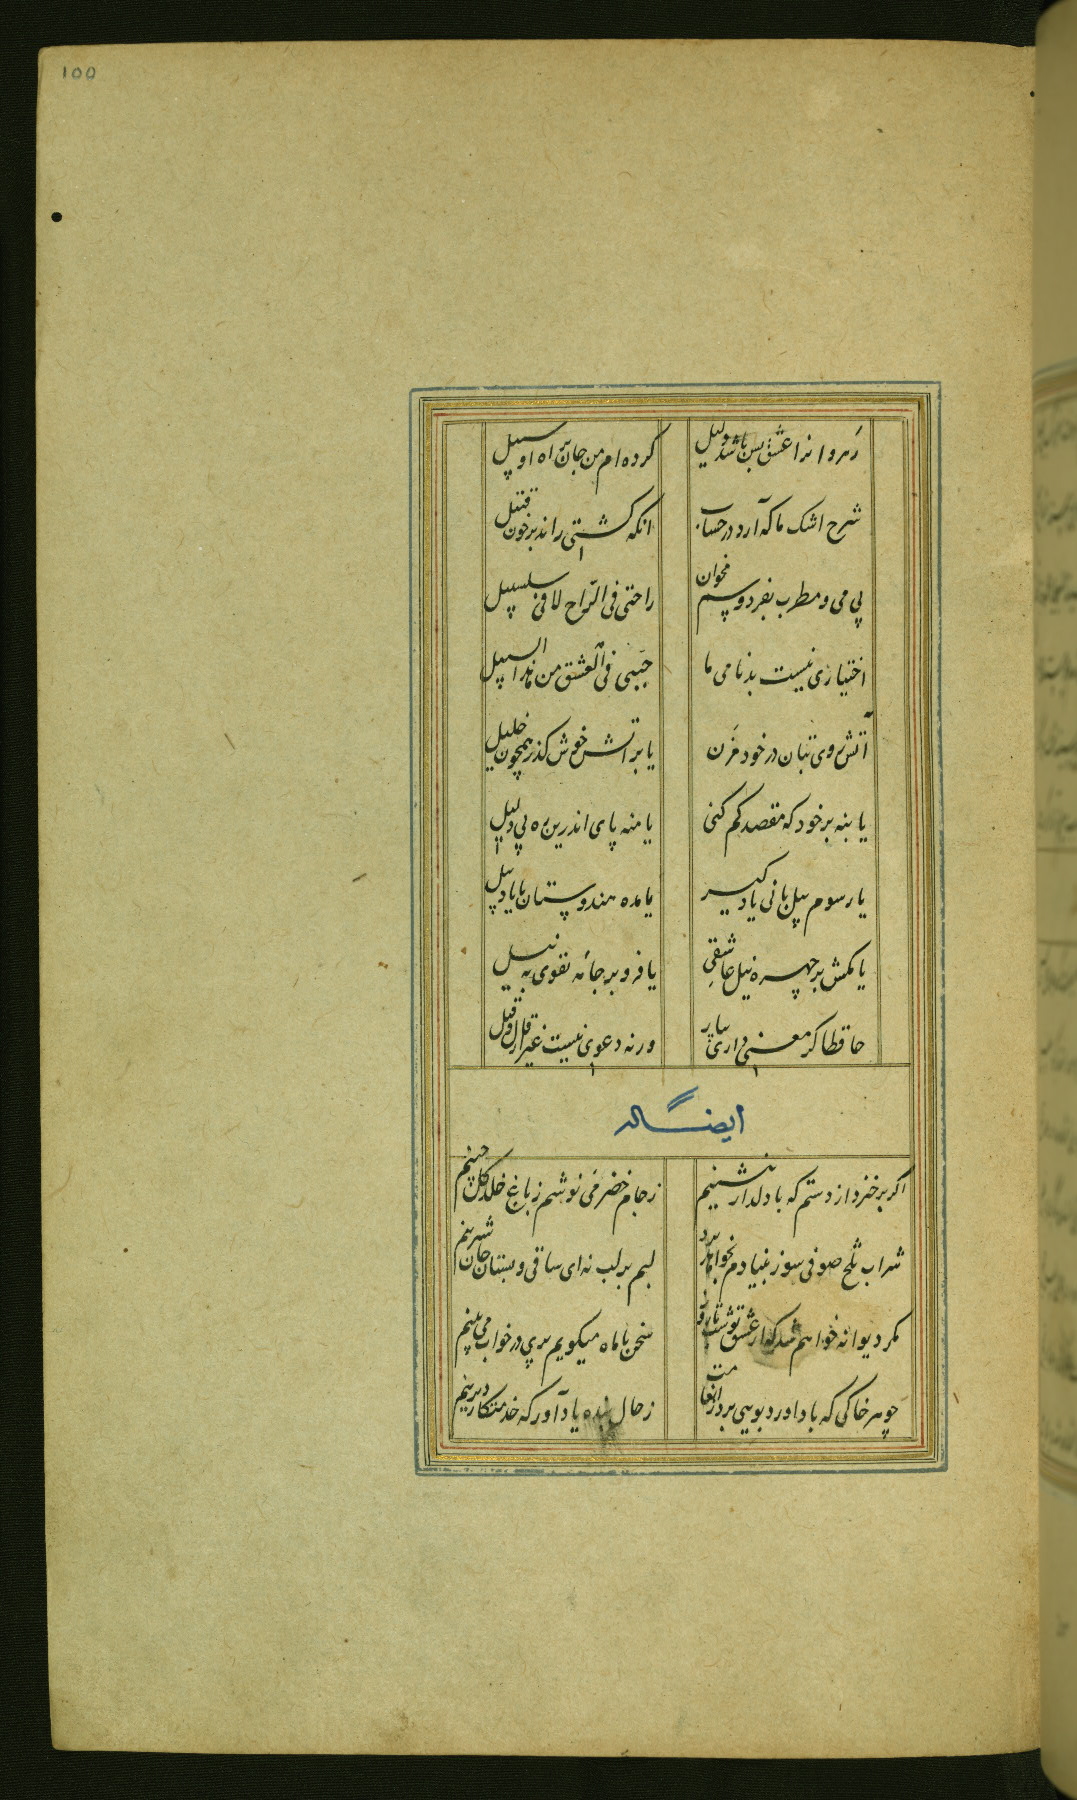 ۱۵۵
رهروانرا عشق بس باشد دلیل
کرده‌ام من جان براه او سبیل
شرح اشک ما که آرد در حساب
انکه کشتی راند بر خون قتیل
بی می و مطرب بفردوسم مخوان
راحتی فی الراح لا فی سلسبیل
اختیاری نیست بدنامی ما
فی العشق من السبیل
آتش روی بتان در خود مزن
یا بر اتش خوش گذر همچون خلیل
یا بنه بر خود که مقصد گم کنی
یا منه پای اندرین ره بی دلیل
یا رسوم پیل بانی یاد گیر
یا مده هندوستان با یاد پیل
یا مکش بر چهره نیل عاشقی
یا فرو بر جامه تقوی به نیل
حافظا گر معنی داری بیار
ورنه دعوی نیست غیر از قال و قیل
ایضاله
اگر برخیزد از دستم که با دلدار بنشینم
ز جام خضر می نوشم ز باغ خلد گل چینم
شراب تلخ صوفی سوز بنیادم نخواهد برد
لبم بر لب نه ای ساقی و بستان جان شیرینم
مگر دیوانه خواهم شد که از عشق تو شب تا روز
سخن با ماه میگویم پری در خواب می بینم
چو هر خاکی که باد اورد بویی برد از انعامت
ز حال بنده یاد آور که خدمتکار دیرینم